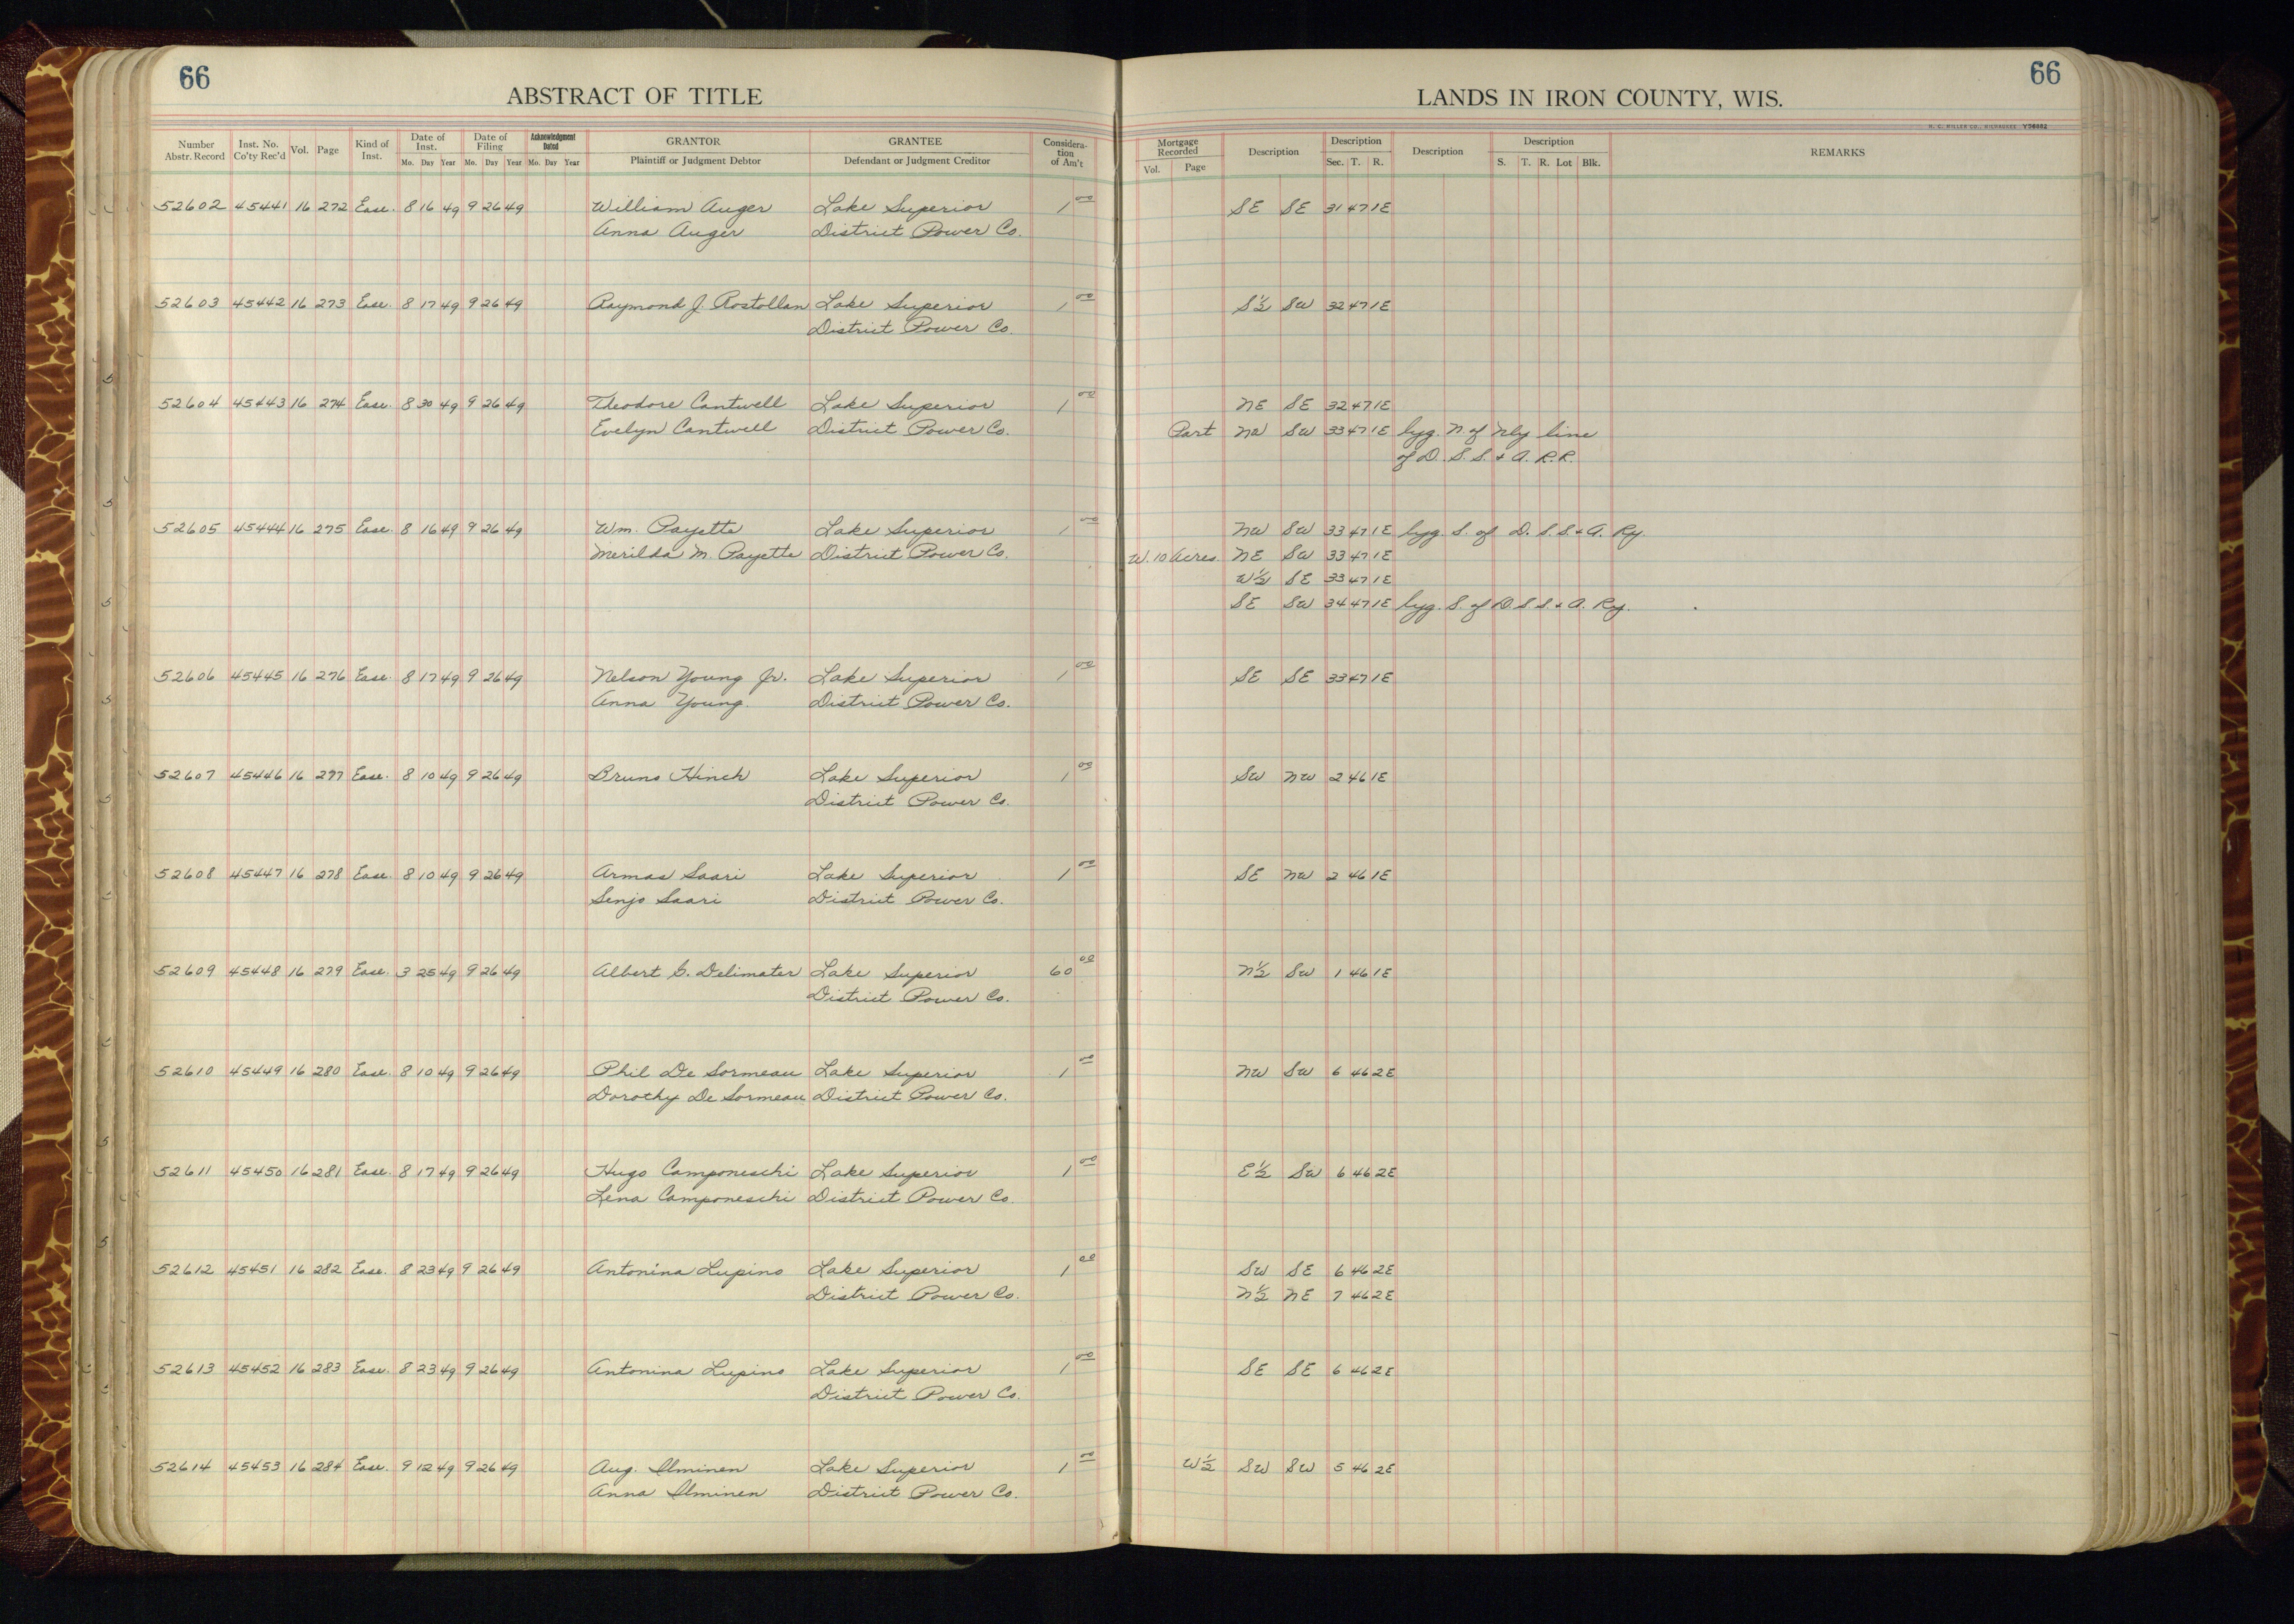 66
ABSTRACT OF TITLE
Number Abstr. Record | Inst. No. Co'ty Rec'd | Vol. | Page | Kind of Inst. | Date of Inst. Mo. Day Year | Date of Filing Mo. Day Year | Acknowledgment Dated Mo. Day Year | GRANTOR Plaintiff or Judgment Debtor | GRANTEE Defendant or Judgment Creditor | Considera-tion of Am't
66
LANDS IN IRON COUNTY, WIS.
H. C. MILLER CO., MILWAUKEE
Mortgage Recorded Vol. Page | Description | Description Sec. T. R. | Description | Description S. T. R. Lot Blk. | REMARKS
52602 45441 16 272 Ease. 8 16 49 9 26 49 William Auger Lake Superior 1 00 SE SE 31 47 1E
Anna Auger District Power Co.
52603 45442 16 273 Ease. 8 17 49 9 26 49 Raymond J. Rostollan Lake Superior 1 00 S½ SW 32 47 1E
District Power Co.
52604 45443 16 274 Ease. 8 30 49 9 26 49 Theodore Cantwell Lake Superior 1 00 NE SE 32 47 1E
Evelyn Cantwell District Power Co. Part NW SW 33 47 1E lyg. N. of Nly line
of D. S. S. + A. R.R.
52605 45444 16 275 Ease. 8 16 49 9 26 49 Wm. Payette Lake Superior 1 00 NW SW 33 47 1E lyg. S. of D. S. S. + A. Ry.
Merilda M. Payette District Power Co. W. 10 Acres NE SW 33 47 1E
W½ SE 33 47 1E
SE SW 34 47 1E lyg. S. of D. S. S. + A. Ry.
52606 45445 16 276 Ease. 8 17 49 9 26 49 Nelson Young Jr. Lake Superior 1 00 SE SE 33 47 1E
Anna Young. District Power Co.
52607 45446 16 277 Ease. 8 10 49 9 26 49 Bruno Hinch Lake Superior 1 00 SW NW 2 46 1E
District Power Co.
52608 45447 16 278 Ease. 8 10 49 9 26 49 Armas Saari Lake Superior 1 00 SE NW 2 46 1E
Senjo Saari District Power Co.
52609 45448 16 279 Ease. 3 25 49 9 26 49 Albert G. Delimater Lake Superior 60 00 N½ SW 1 46 1E
District Power Co.
52610 45449 16 280 Ease. 8 10 49 9 26 49 Phil De Sormeau Lake Superior 1 00 NW SW 6 46 2E
Dorothy De Sormeau District Power Co.
52611 45450 16 281 Ease. 8 17 49 9 26 49 Hugo Camponeschi Lake Superior 1 00 E½ SW 6 46 2E
Lena Camponeschi District Power Co.
52612 45451 16 282 Ease. 8 23 49 9 26 49 Antonina Lupino Lake Superior 1 00 SW SE 6 46 2E
District Power Co. N½ NE 7 46 2E
52613 45452 16 283 Ease. 8 23 49 9 26 49 Antonina Lupino Lake Superior 1 00 SE SE 6 46 2E
District Power Co.
52614 45453 16 284 Ease. 9 12 49 9 26 49 Aug. Ilminen Lake Superior 1 00 W½ SW SW 5 46 2E
Anna Ilminen District Power Co.